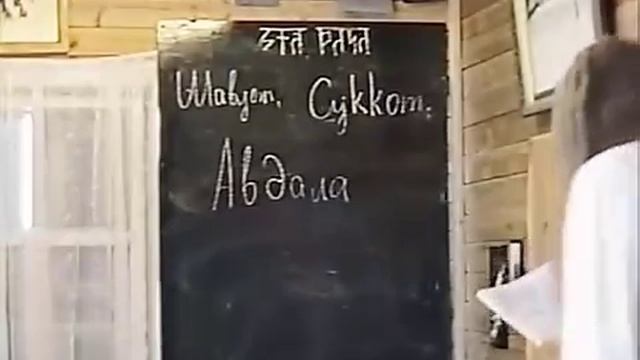 Шавуот, Суккот,
Авдала